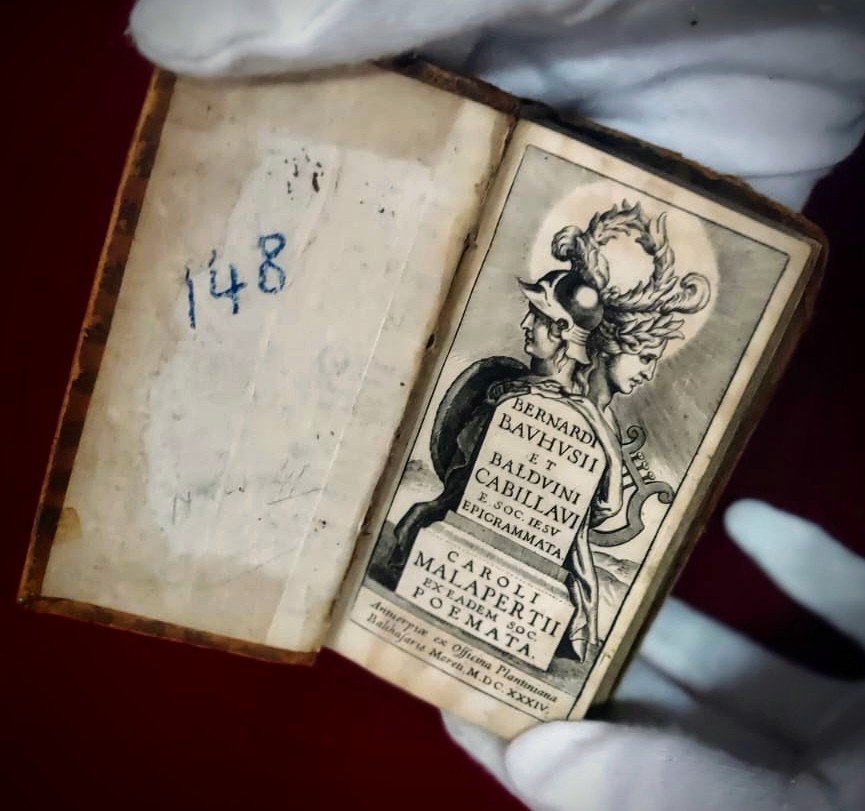 148
BERNARDI
BAVHVSII
ET
BALDVINI
CABILLAVI
E SOC. IESV
EPIGRAMMATA.
CAROLI
MALAPERTII
EX EADEM SOC.
POEMATA.
Antuerpiæ ex Officina Plantiniana
Balthasaris Moreti. M.DC.XXXIV.